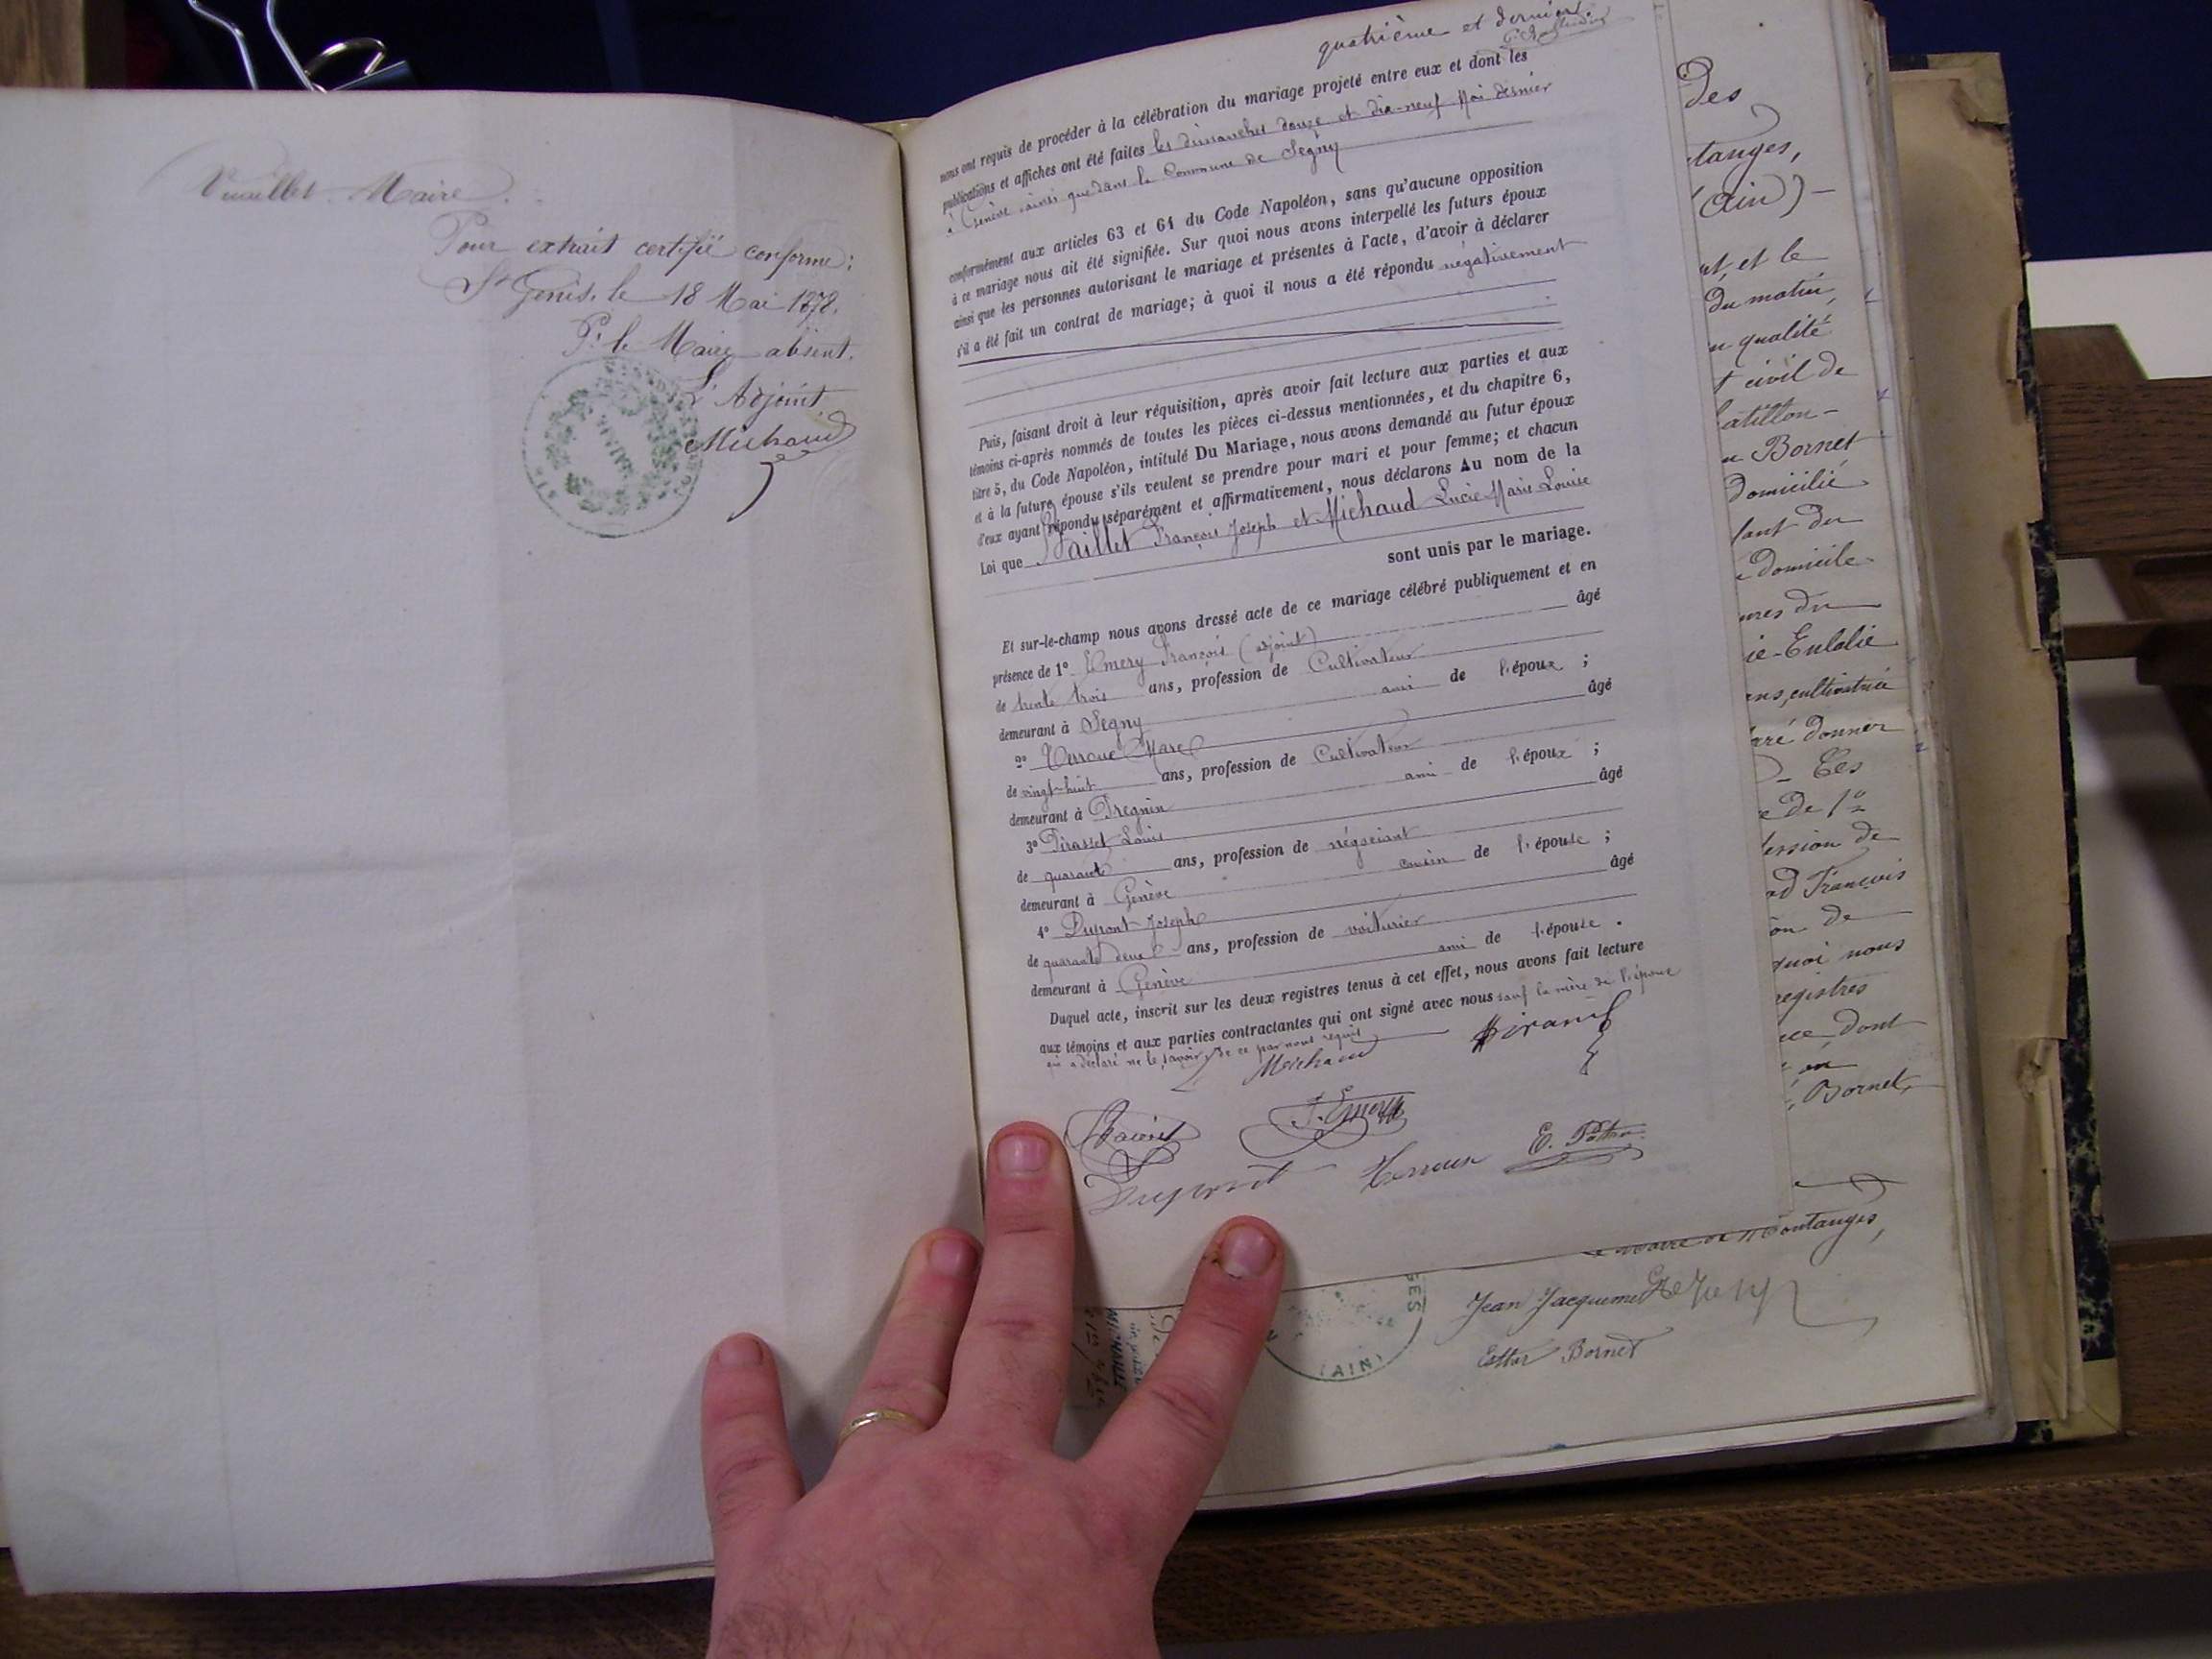 Vuaillet Maire.
Pour extrait certifié conforme:
St Genis, le 18 Mai 1878.
Pr le Maire absent.
L'Adjoint
Michaud
MAIRIE
quatrième et dernier.
nous ont requis de procéder à la célébration du mariage projeté entre eux et dont les
publications et affiches ont été faites les dimanches douze et dix-neuf Mai dernier
à Genève ainsi que dans la Commune de Segny
conformément aux articles 63 et 64 du Code Napoléon, sans qu'aucune opposition
à ce mariage nous ait été signifiée. Sur quoi nous avons interpellé les futurs époux
ainsi que les personnes autorisant le mariage et présentes à l'acte, d'avoir à déclarer
s'il a été fait un contrat de mariage; à quoi il nous a été répondu négativement
Puis, faisant droit à leur réquisition, après avoir fait lecture aux parties et aux
témoins ci-après nommés de toutes les pièces ci-dessus mentionnées, et du chapitre 6,
titre 5, du Code Napoléon, intitulé Du Mariage, nous avons demandé au futur époux
et à la future épouse s'ils veulent se prendre pour mari et pour femme; et chacun
d'eux ayant répondu séparément et affirmativement, nous déclarons Au nom de la
Loi que François Joseph et Michaud Lucie Marie Louise
sont unis par le mariage.
Et sur-le-champ nous avons dressé acte de ce mariage célébré publiquement et en
présence de 1° Emery François (adjoint) âgé
de trente trois ans, profession de Cultivateur
demeurant à Segny ami de l'époux ;
2° Marc âgé
de vingt-huit ans, profession de Cultivateur
demeurant à Pregnin ami de l'époux ;
3° Pirasset Louis âgé
de quarante ans, profession de négociant
demeurant à Genève cousin de l'épouse ;
4° Dupont Joseph âgé
de quarante deux ans, profession de voiturier
demeurant à Genève ami de l'épouse .
Duquel acte, inscrit sur les deux registres tenus à cet effet, nous avons fait lecture
aux témoins et aux parties contractantes qui ont signé avec nous sauf la mère de l'époux
qui a déclaré ne le savoir de ce par nous requis
Michaud
F. Emery
Dupont
Des
tanges,
(Ain) –
ut et le
du matin,
qualité
t civil de
atillon-
Bornet
domicilié
lant du
domicile
ures du
ie-Eulalie
ans, cultivatrice
aré donner
– Ces
e de 1°
fession de
François
on de
quoi nous
registres
dont
en
Bornet,
Montanges,
Jean Jacquemet
Esther Bornet
(AIN)